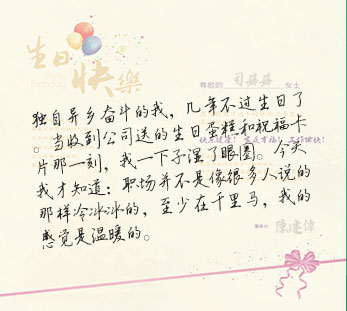 生日
快樂
Happy
Birthday
尊敬的 司 女士
独自异乡奋斗的我，几年不过生日了
。当收到公司送的生日蛋糕和祝福卡
片那一刻，我一下子湿了眼圈。今天
我才知道：职场并不是像很多人说的
那样冷冰冰的，至少在千里马，我的
感觉是温暖的。
董事长： 陳建偉